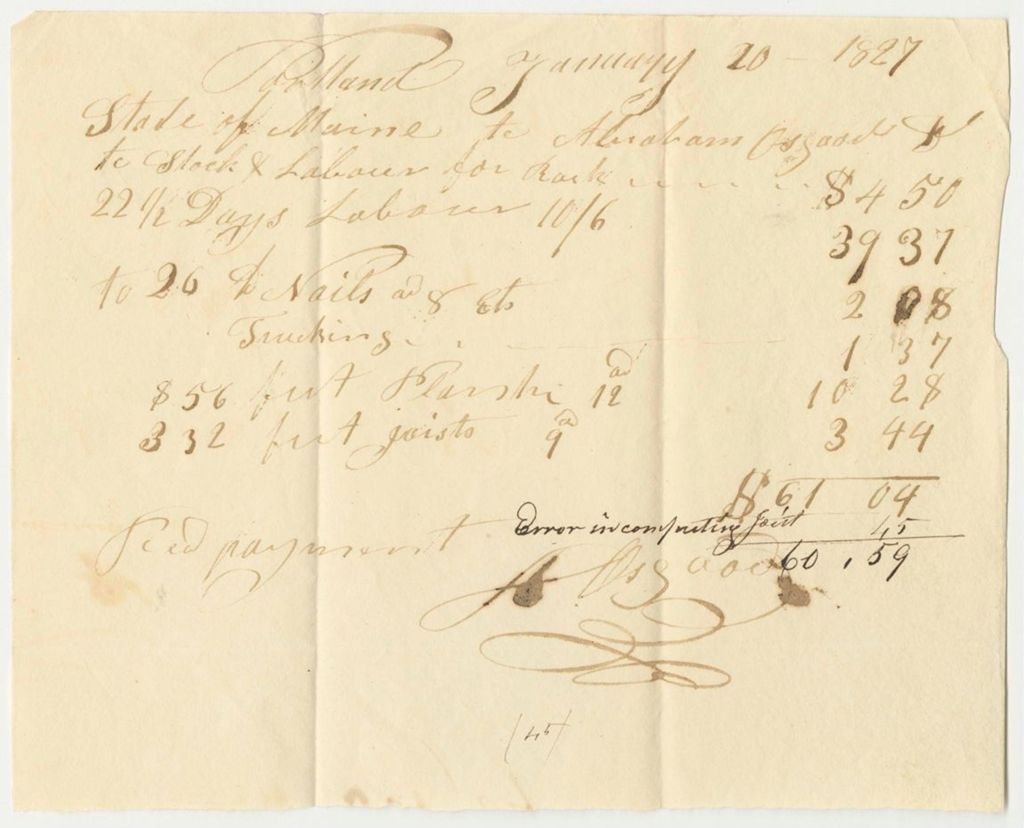 Portland January 20 - 1827
State of Maine to Abraham Osgood Dr
to Stock & Labour for Rack $4 50
22 1/2 Days Labour 10/6 39 37
to 26 lb Nails ad 8 cts 2 08
Trucking 1 37
856 feet Plank 12 ad 10 28
332 feet joists 9 d 3 44
$61 04
Error in computing joist 45
60.59
Recd payment
A Osgood
(45)